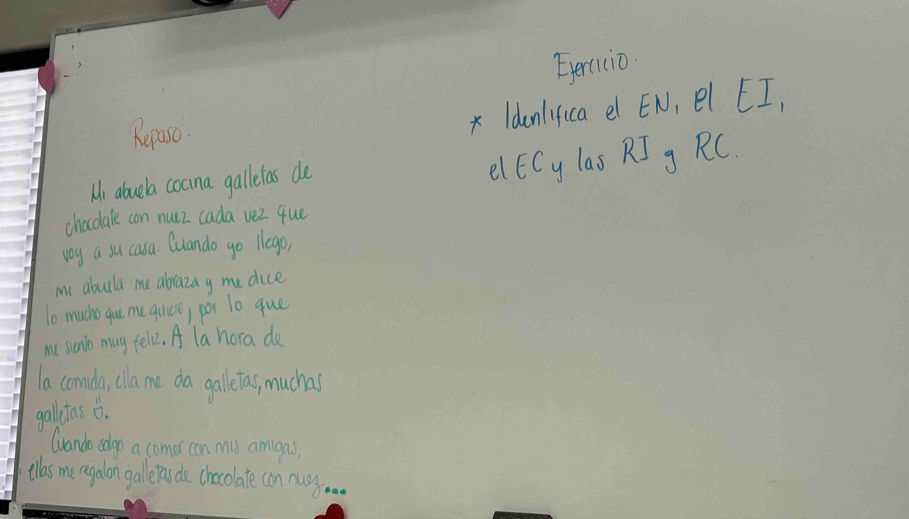 Repaso.
Mi abuela cocina galletas de
chocolate con nuez cada vez que
voy a su casa. Cuando yo llego,
mi abuela me abraza y me dice
lo mucho que me quiere, por lo que
me siento muy feliz. A la hora de
la comida, ella me da galletas, muchas
galletas ü.
Cuando salgo a comer con mis amigas,
ellas me regalan galletas de chocolate con nuez...
Ejercicio.
* Identifica el EN, el EI,
el EC y las RI y RC.